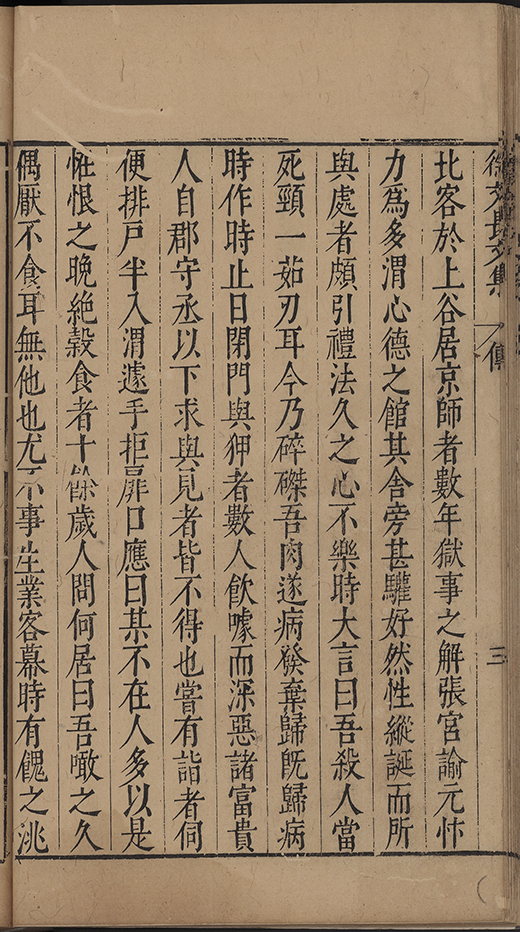 徐文長文集 傳 三
北客於上谷居京師者數年獄事之解張宮諭元忭
力爲多渭心德之館其舍旁甚驩好然性縱誕而所
與處者頗引禮法久之心不樂時大言曰吾殺人當
死頸一茹刃耳今乃碎磔吾肉遂病發棄歸旣歸病
時作時止日閉門與狎者數人飲噱而深惡諸富貴
人自郡守丞以下求與見者皆不得也嘗有詣者伺
便排戸半入渭遽手拒扉口應曰某不在人多以是
恠恨之晚絶糓食者十餘歲人問何居曰吾噉之久
偶厭不食耳無他也尤不事生業客幕時有餽之洮